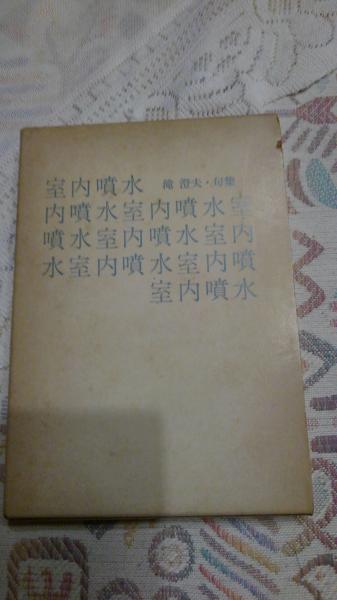 室内噴水 滝 澄夫・句集
内噴水室内噴水室
噴水室内噴水室内
水室内噴水室内噴
室内噴水